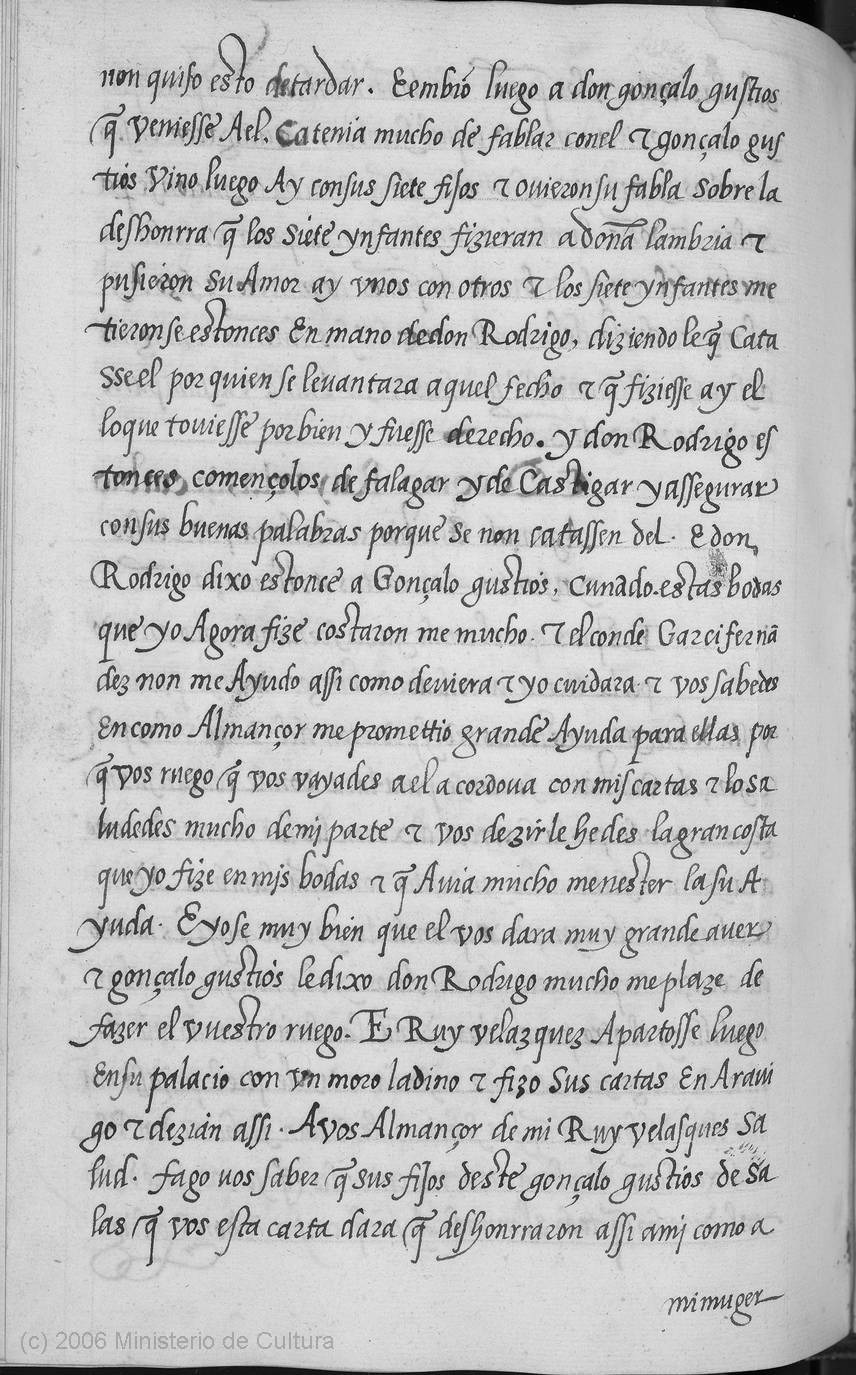 non quiso esto detardar. E embió luego a don gonçalo gustios
q̃ veniesse Ael. Ca tenia mucho de fablar conel τ gonçalo gus
tiós Vino luego Ay consus siete fijos τ ovieron su fabla sobre la
deshonrra q̃ los siete ynfantes fizieran a doña lambria τ
pusieron su Amor ay vnos con otros τ los siete ynfantes me
tieron se estonces En mano de don Rodrigo, diziendo le q̃ Cata
sse el por quien se levantara aquel fecho τ q̃ fiziesse ay el
loque toviesse por bien y fuesse derecho. y don Rodrigo es
tonces començolos de falagar y de Castigar y assegurar
consus buenas palabras porque se non catassen del. E don
Rodrigo dixo estonce a Gonçalo gustiós, Cunado. estas bodas
que yo Agora fize costaron me mucho. τ el conde Garci fernã
dez non me Ayudo assi como deviera τ yo cuidara τ vos sabedes
En como Almançor me promettio grande Ayuda para ellas por
q̃ vos ruego q̃ vos vayades a el a cordova con mis cartas τ lo sa
ludedes mucho de mi parte τ vos dezirle hedes la gran costa
que yo fize en mis bodas τ q̃ Avia mucho menester la su A
yuda. E yo se muy bien que el vos dara muy grande aver
τ gonçalo gustiós le dixo don Rodrigo mucho me plaze de
fazer el vuestro ruego. E Ruy velazquez Apartosse luego
En su palacio con vn moro ladino τ fizo sus cartas En Aravi
go τ dezian assi. A vos Almançor de mi Ruy velasques Sa
lud. fago vos saber q̃ sus fijos deste gonçalo gustios de Sa
las q̃ vos esta carta dara q̃ deshonrraron assi ami como a
mi muger
(c) 2006 Ministerio de Cultura